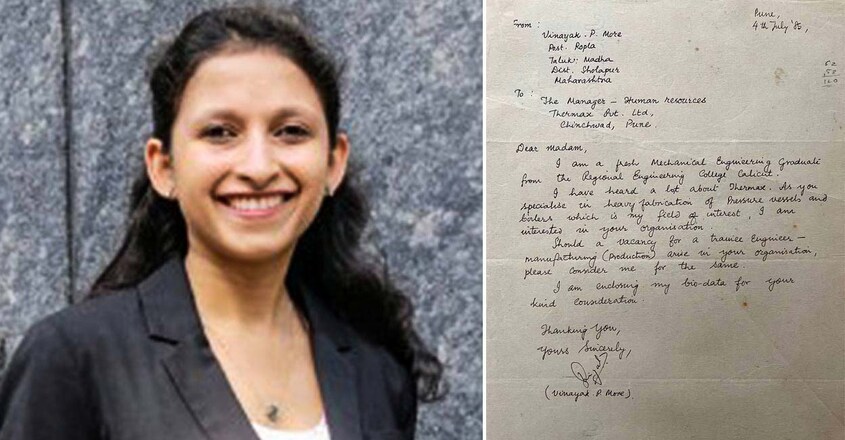 Pune,
4th July '85,
From :
Vinayak . P. More
Post. Ropla
Taluk: Madha
Dist. Sholapur
Maharashtra
To :
The Manager – Human resources
Thermax Pvt. Ltd,
Chinchwad, Pune.
Dear Madam,
I am a fresh Mechanical Engineering Graduate
from the Regional Engineering College Calicut.
I have heard a lot about Thermax. As you
specialise in heavy fabrication of Pressure vessels and
boilers which is my field of interest, I am
interested in your organisation
Should a vacancy for a trainee Engineer –
manufacturing (Production) arise in your organisation,
please consider me for the same.
I am enclosing my bio-data for your
kind consideration
Thanking You,
Yours Sincerely,
(Vinayak P. More)